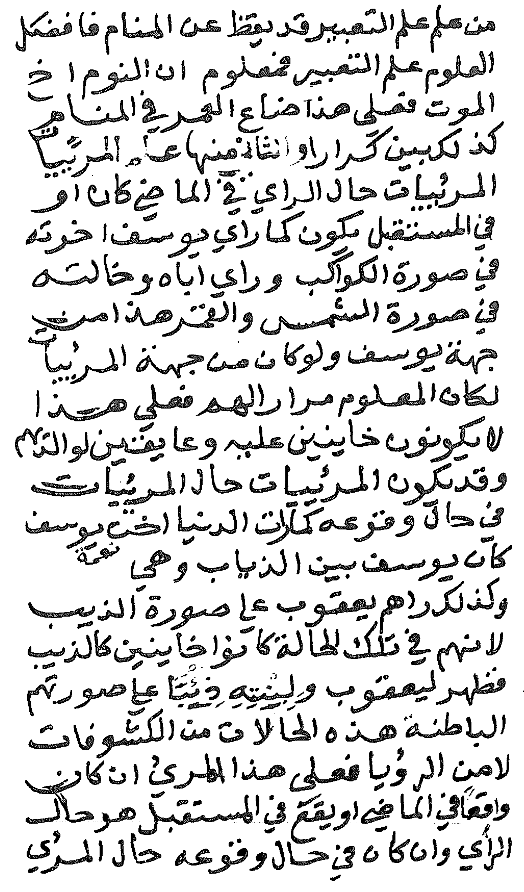 من علم علم التعبير قد يقظ عن المنام فافضل
العلوم علم التعبير فمعلوم ان النوم اخ
الموت فعلى هذا ضاع العمر في المنام
كذلك بين كرارا والثاني منها عماء المرئيات
المرئيات حال الراي في الماضي كان او
في المستقبل يكون كما راي يوسف اخوته
في صورة الكواكب وراي اباه وخالته
في صورة الشمس والقمر هذا من
جهة يوسف ولو كان من جهة المرئيات
لكان المعلوم مرارالهم فعلي هذا
لا يكونون خاينين عليه وعايقين لوالديهم
وقد يكون المرئيات حال المرئيات
في حال وقوعه كما رات الدنيا اخت يوسف
كان يوسف بين الذياب وهي نعمة
وكذلك راهم يعقوب علي صورة الذيب
لانهم في تلك الحالة كانوا خاينين كالذيب
فظهر ليعقوب ولبنته ذئبا علي صورتهم
الباطنة هذه الحالات من الكشوفات
لا من الرويا فعلي هذا المرئ ان كان
واقعا في الماضي او يقع في المستقبل هو حال
الرأي وان كان في حال وقوعه حال المرئ